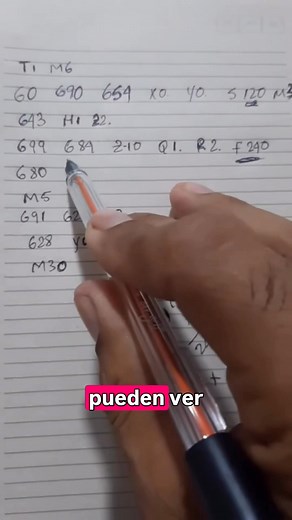 T1 M6
G0 G90 G54 X0 Y0. S 120 M3
G43 H1 Z2.
G99 G84 Z-10 Q1. R2. F240
G80
M5
G91
G28
M30
pueden ver